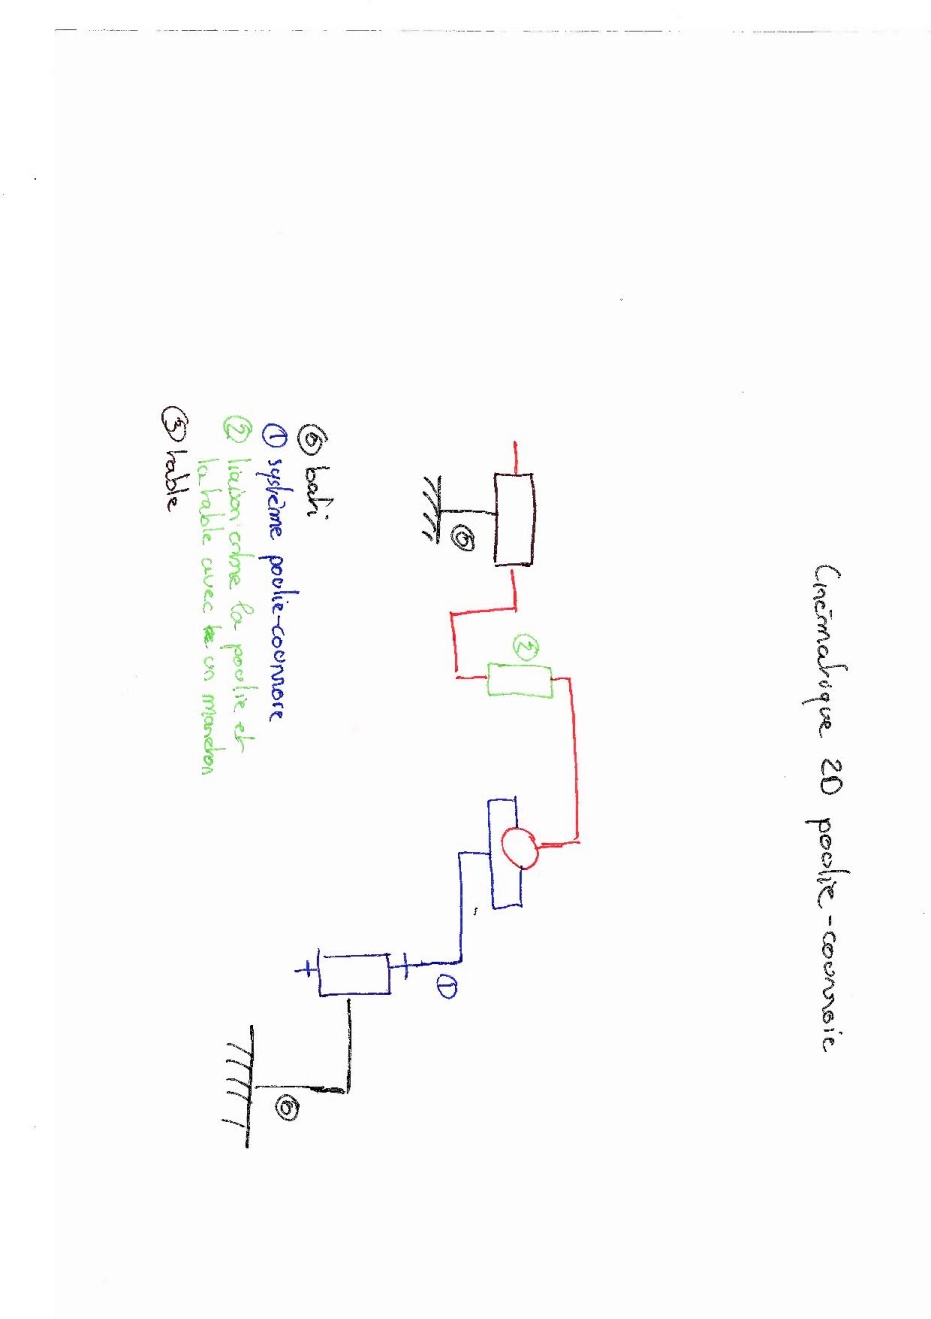 Cinématique 2D poulie-courroie
②
①
⓪
⓪
⓪ bati
① système poulie-courroie
② liaison entre la poulie et
la table avec un mandron
③ table